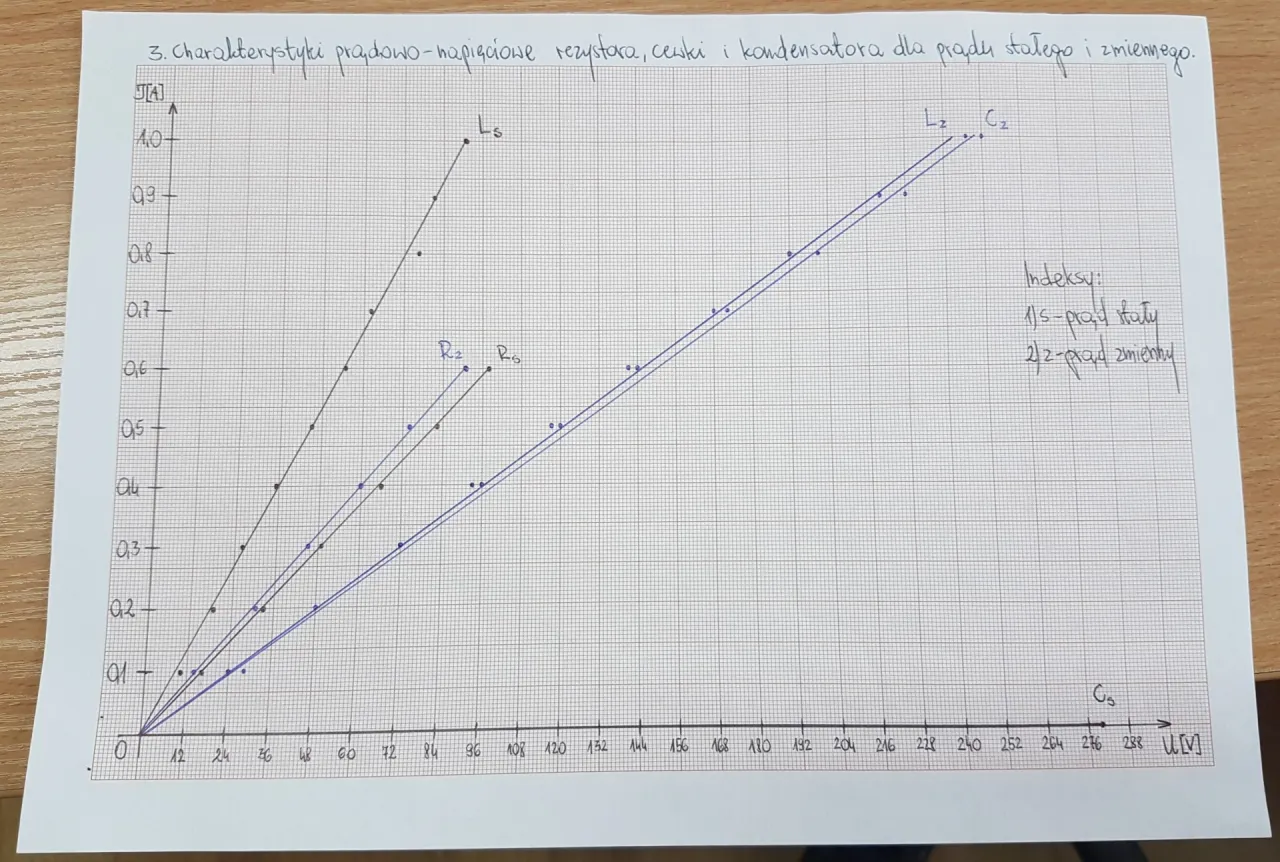 3. Charakterystyki prądowo-napięciowe rezystora, cewki i kondensatora dla prądu stałego i zmiennego.
J[A]
1,0
0,9
0,8
0,7
0,6
0,5
0,4
0,3
0,2
0,1
Ls
Rz
Rs
Lz
Cz
Indeksy:
1) s-prąd stały
2) z-prąd zmienny
Cs
0 12 24 36 48 60 72 84 96 108 120 132 144 156 168 180 192 204 216 228 240 252 264 276 288 U[V]